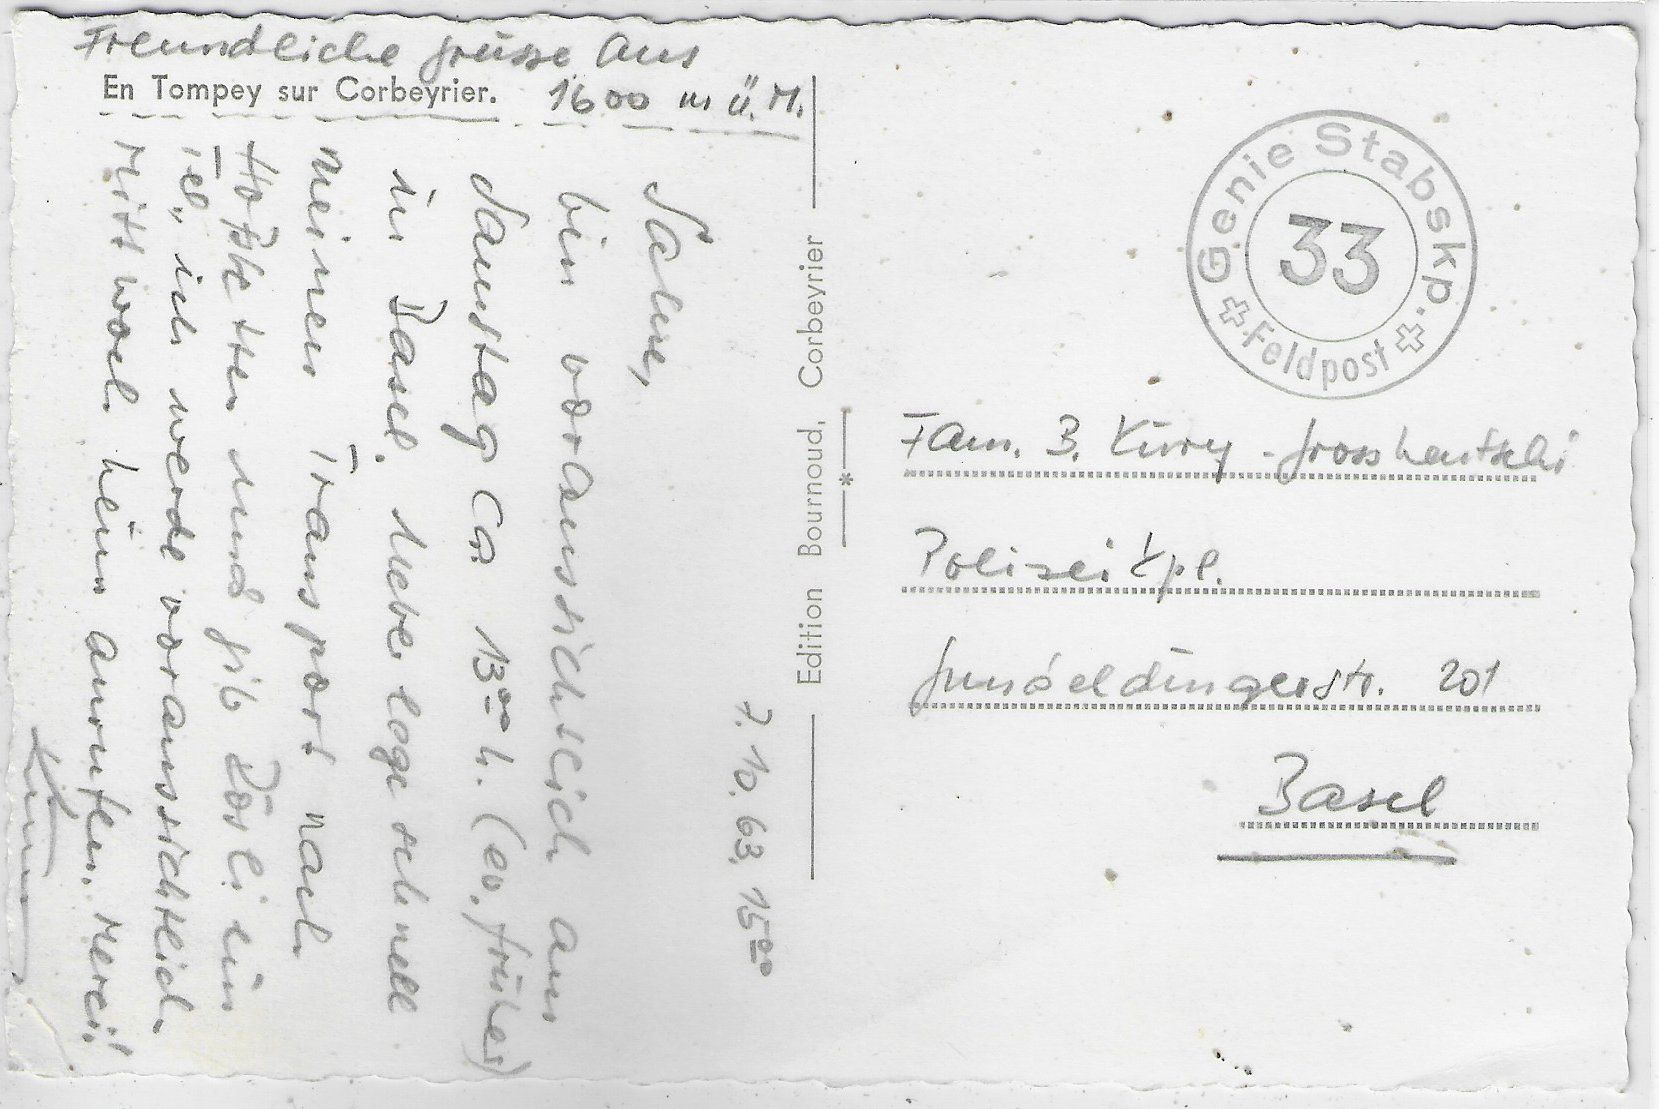 Freundliche Grüsse aus
En Tompey sur Corbeyrier. 1600 m ü. M.
7.10.63. 15⁰⁰
Salue,
bin voraussichtlich am
Samstag ca 13⁰⁰ h. (ev. früher)
in Basel.
schnell
meinen Transport nach
und gib Rösli ein
Tel., ich werde voraussichtlich
Mittwoch heim anrufen. Merci!
Edition Bournoud, Corbeyrier
Genie Stabskp.
33
Feldpost
Fam. B. Küry - Grosshentschi
Polizei Kpl.
Gundeldingerstr. 201
Basel